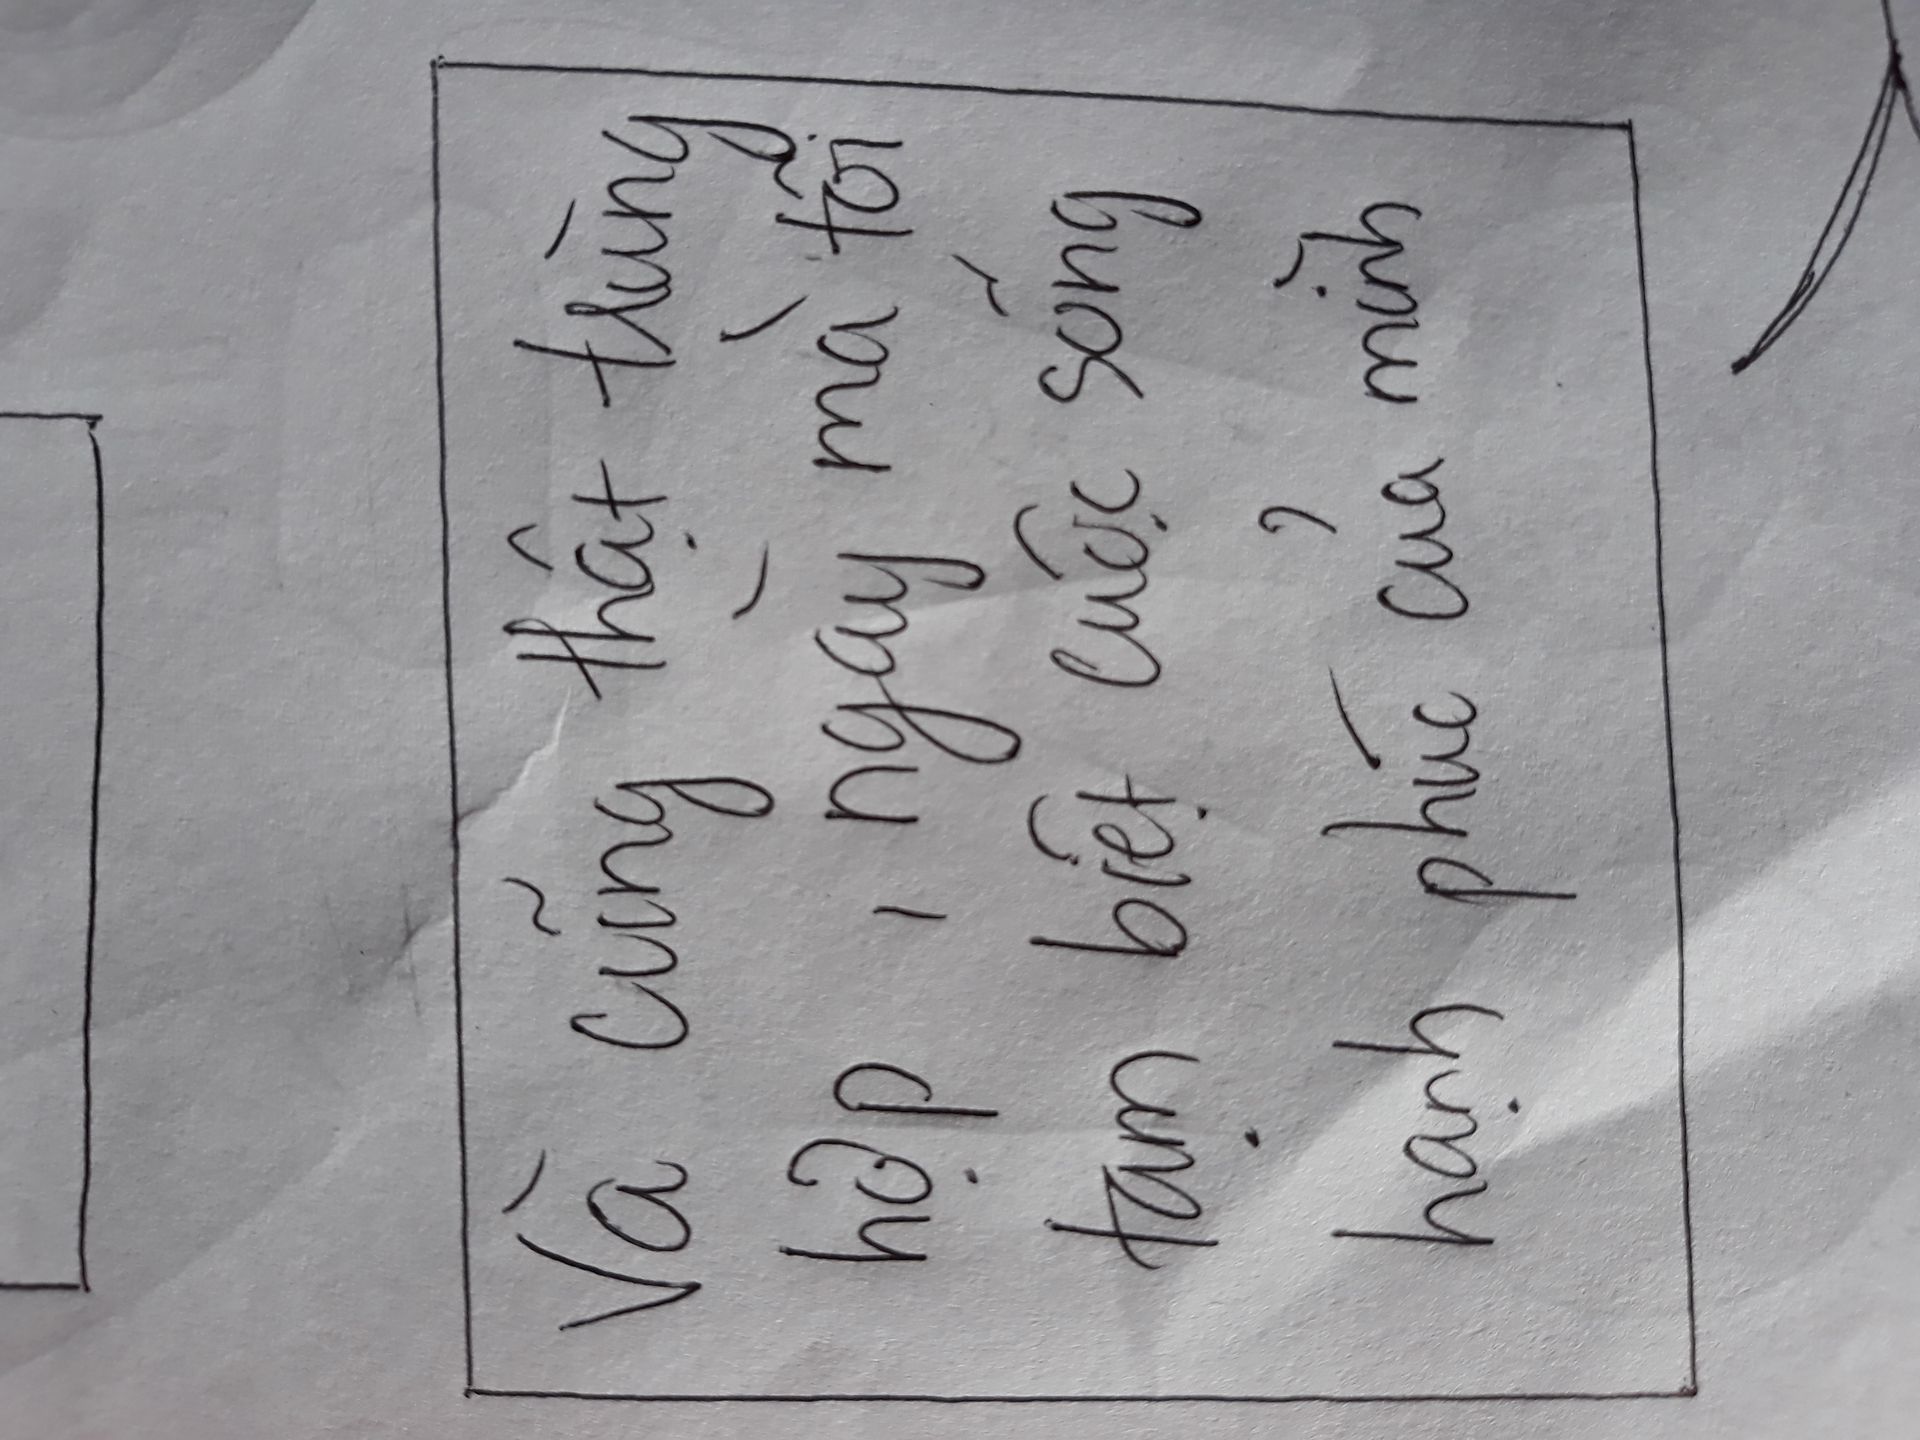 Và cũng thật trùng
hợp, ngày mà tôi
tạm biệt cuộc sống
hạnh phúc của mình